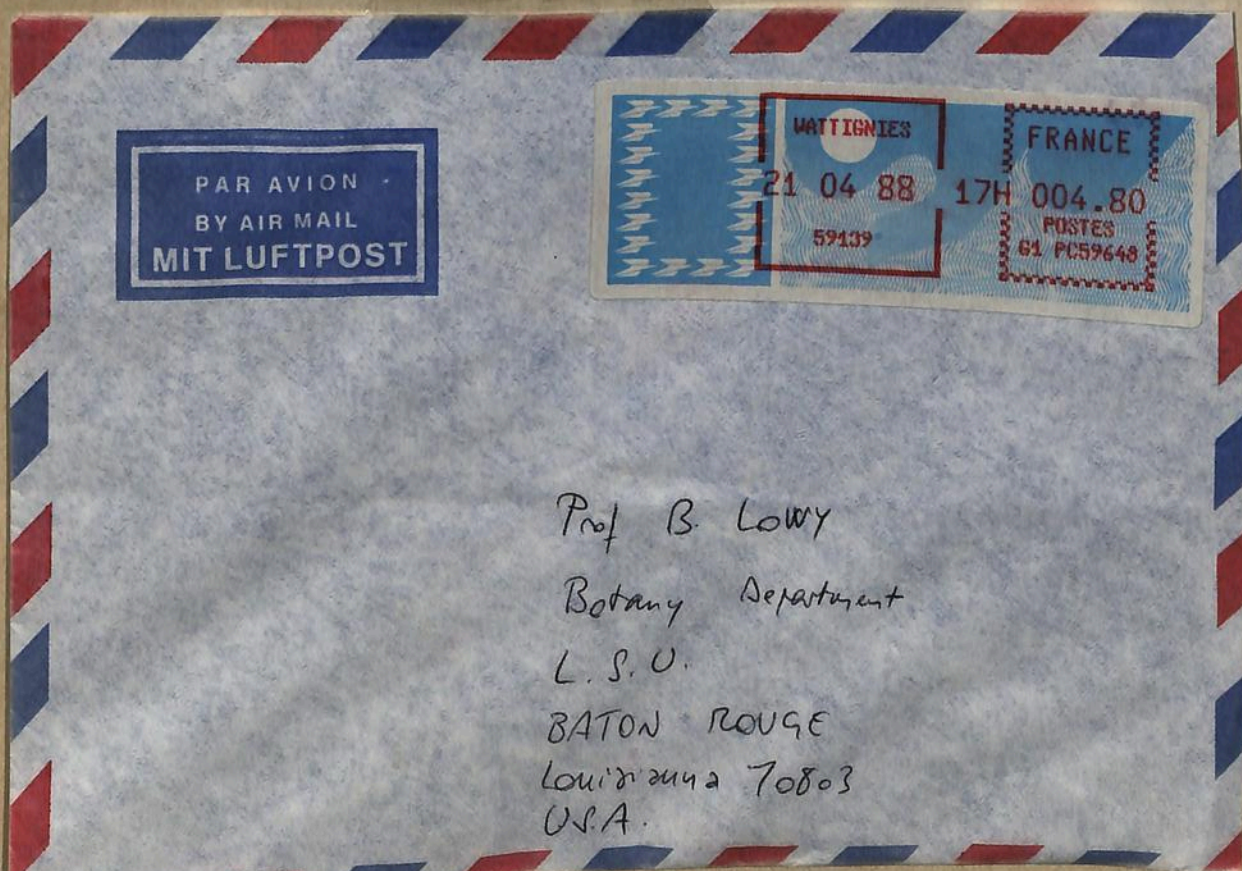 PAR AVION
BY AIR MAIL
MIT LUFTPOST
WATTIGNIES
21 04 88
59139
FRANCE
17H 004.80
POSTES
G1 PC59648
Prof B. Lowy
Botany Department
L. S. U.
BATON ROUGE
Louisianna 70803
U.S.A.